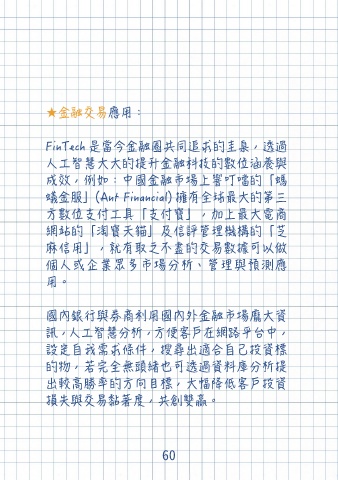 ★金融交易應用：
FinTech 是當今金融圈共同追求的圭臬，透過
人工智慧大大的提升金融科技的數位涵養與
成效，例如：中國金融市場上響叮噹的「螞
蟻金服」(Ant Financial) 擁有全球最大的第三
方數位支付工具「支付寶」，加上最大電商
網站的「淘寶天貓」及信評管理機構的「芝
麻信用」，就有取之不盡的交易數據可以做
個人或企業眾多市場分析、管理與預測應
用。
國內銀行與券商利用國內外金融市場龐大資
訊，人工智慧分析，方便客戶在網路平台中，
設定自我需求條件，搜尋出適合自己投資標
的物，若完全無頭緒也可透過資料庫分析提
出較高勝率的方向目標，大幅降低客戶投資
損失與交易黏著度，共創雙贏。
60